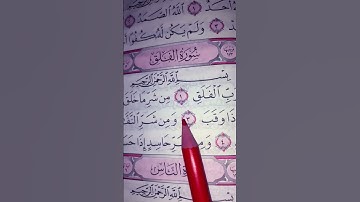 حَدٌ ۝١ اللَّهُ الصَّمَدُ
وَلَمْ يَكُن لَّهُ كُفُوًا
سُورَةُ الْفَلَقِ
بِسْمِ اللَّهِ الرَّحْمَٰنِ الرَّحِيمِ
بِّ الْفَلَقِ ۝١ مِن شَرِّ مَا خَلَقَ
ذَا وَقَبَ ۝٣ وَمِن شَرِّ النَّفَّ
۝٤ وَمِ رِّ حَاسِدٍ إِذَا حَسَ
ةُ النَّاسِ
بِسْمِ اللَّهِ الرَّحْمَٰنِ الرَّحِيمِ